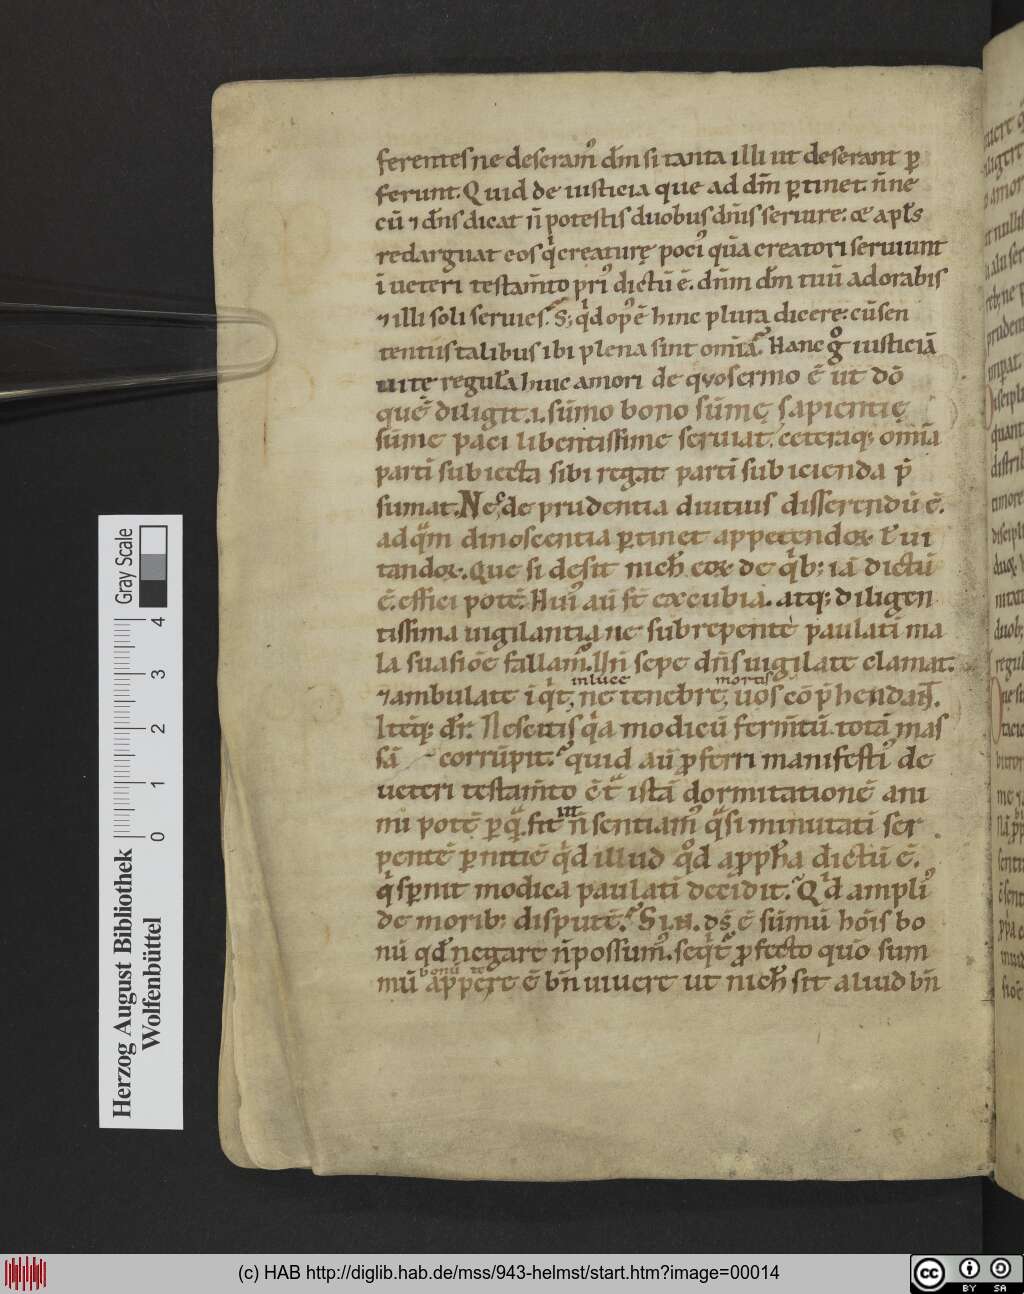 ferentes ne deseram᷒ dm̄ si tanta illi ut deserant ꝑ
ferunt. Quid de iusticia que ad dm̄ ꝑtinet. n̄ne
cū ⁊ dn̄s dicat n̄ potestis duobus dn̄is seruire: & apl̄s
redarguat eos qͥ creaturę poci᷒ qua creatori seruiunt
ī ueteri testam̄to pri᷒ dictū ē. dn̄m dm̄ tuū adorabis
⁊ illi soli seruies. S; qͥd op᷒ ē hinc plura dicere: cū sen
tentiis talibus ibi plena sint om̄ia. Hanc gͦ iusticiā
uitę regula huic amori de quo sermo ē ut dō
quē diligit .i. sūmo bono sūmę sapientię
sūme paci libentissime seruiat. ceteraq; om̄ia
parti᷒ subiecta sibi regat parti᷒ subicienda p̄
sumat. Nec de prudentia diutius disserendū ē.
ad qͣm dinoscentia ꝑtinet appetendoꝝ ł ui
tandoꝝ. Que si desit nich̄ eoꝝ de qͥb; iā dictū
ē. effici potē. Hui᷒ aū st̄ excubia. atq; diligen
tissima uigilantia ne subrepente paulati᷒ ma
la suasiōe fallam᷒. Hn̄ sepe dn̄s uigilate clamat.
in luce mortis
⁊ ambulate īqͥt, ne tenebre, uos cōp̄hendant.
Itēq; dr̄. Nescitis qͥa modicū ferm̄tū totā mas
sā corrūpit. quid aū ꝓferri manifesti᷒ de
ueteri testam̄to ē tͣ istā dormitationē ani
mi potē ꝑ qͣ fit n̄ sentiam᷒ qͣsi minutati᷒ ser
in
pente ꝑnitiē qͥd illud qͦd a ꝓph̄a dictū ē.
qͥ sꝑnit modica paulati᷒ decidit. Qͥd ampli᷒
de morib; disputē. Si .n. ds̄ ē sūmū hōis bo
nū qd̄ negare n̄ possum᷒. seqͥt᷒ ꝓfecto quō sum
bonū te
mū appere ē bn̄ uiuere ut nich̄ sit aliud bn̄
Herzog August Bibliothek
Wolfenbüttel
Gray Scale
0 1 2 3 4
(c) HAB http://diglib.hab.de/mss/943-helmst/start.htm?image=00014
cc BY SA